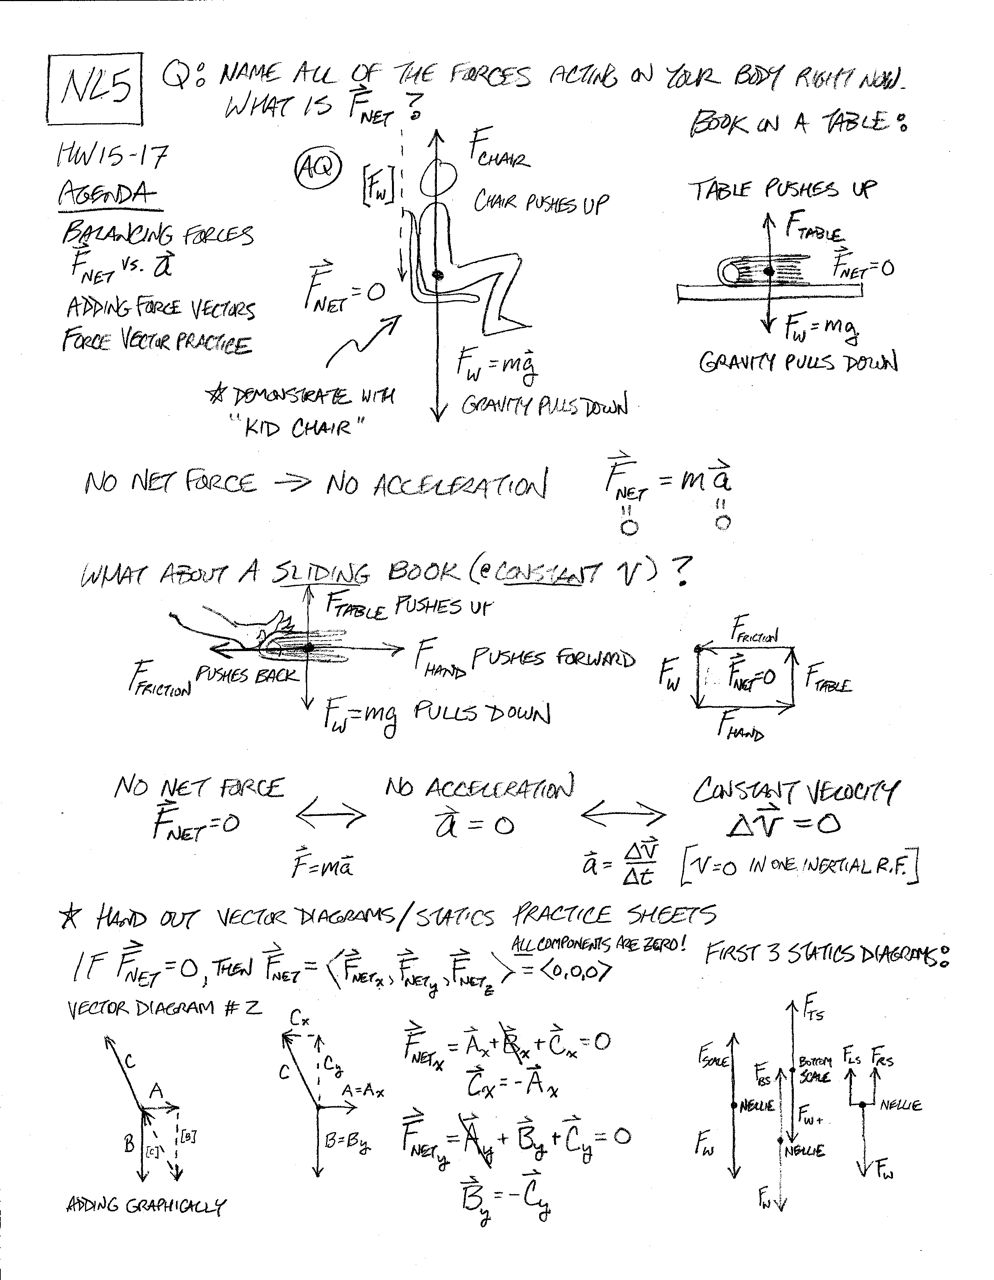 NL5
Q: NAME ALL OF THE FORCES ACTING ON YOUR BODY RIGHT NOW.
WHAT IS F_NET?
HW 15-17
AGENDA
BALANCING FORCES
F_NET VS. a
ADDING FORCE VECTORS
FORCE VECTOR PRACTICE
AQ
[F_W]
F_CHAIR
CHAIR PUSHES UP
F_NET = 0
F_W = mg
GRAVITY PULLS DOWN
☆ DEMONSTRATE WITH
"KID CHAIR"
BOOK ON A TABLE:
TABLE PUSHES UP
F_TABLE
F_NET = 0
F_W = mg
GRAVITY PULLS DOWN
NO NET FORCE → NO ACCELERATION
F_NET = ma
= =
0 0
WHAT ABOUT A SLIDING BOOK (@ CONSTANT V)?
F_TABLE PUSHES UP
F_FRICTION PUSHES BACK
F_HAND PUSHES FORWARD
F_W = mg PULLS DOWN
F_FRICTION
F_W
F_NET = 0
F_TABLE
F_HAND
NO NET FORCE NO ACCELERATION CONSTANT VELOCITY
F_NET = 0 ↔ a = 0 ↔ ΔV = 0
F = ma
a = ΔV/Δt
[V=0 IN ONE INERTIAL R.F.]
☆ HAND OUT VECTOR DIAGRAMS/STATICS PRACTICE SHEETS
ALL COMPONENTS ARE ZERO!
IF F_NET = 0, THEN F_NET = <F_NETx, F_NETy, F_NETz> = <0,0,0>
VECTOR DIAGRAM #2
C
A
B
[C]
[B]
ADDING GRAPHICALLY
Cx
C
Cy
A=Ax
B=By
F_NETx = Ax + Bx + Cx = 0
Cx = -Ax
F_NETy = Ay + By + Cy = 0
By = -Cy
FIRST 3 STATICS DIAGRAMS:
F_SCALE
NELLIE
F_W
F_TS
F_BS
BOTTOM
SCALE
F_W+
NELLIE
F_W
F_LS
F_RS
NELLIE
F_W